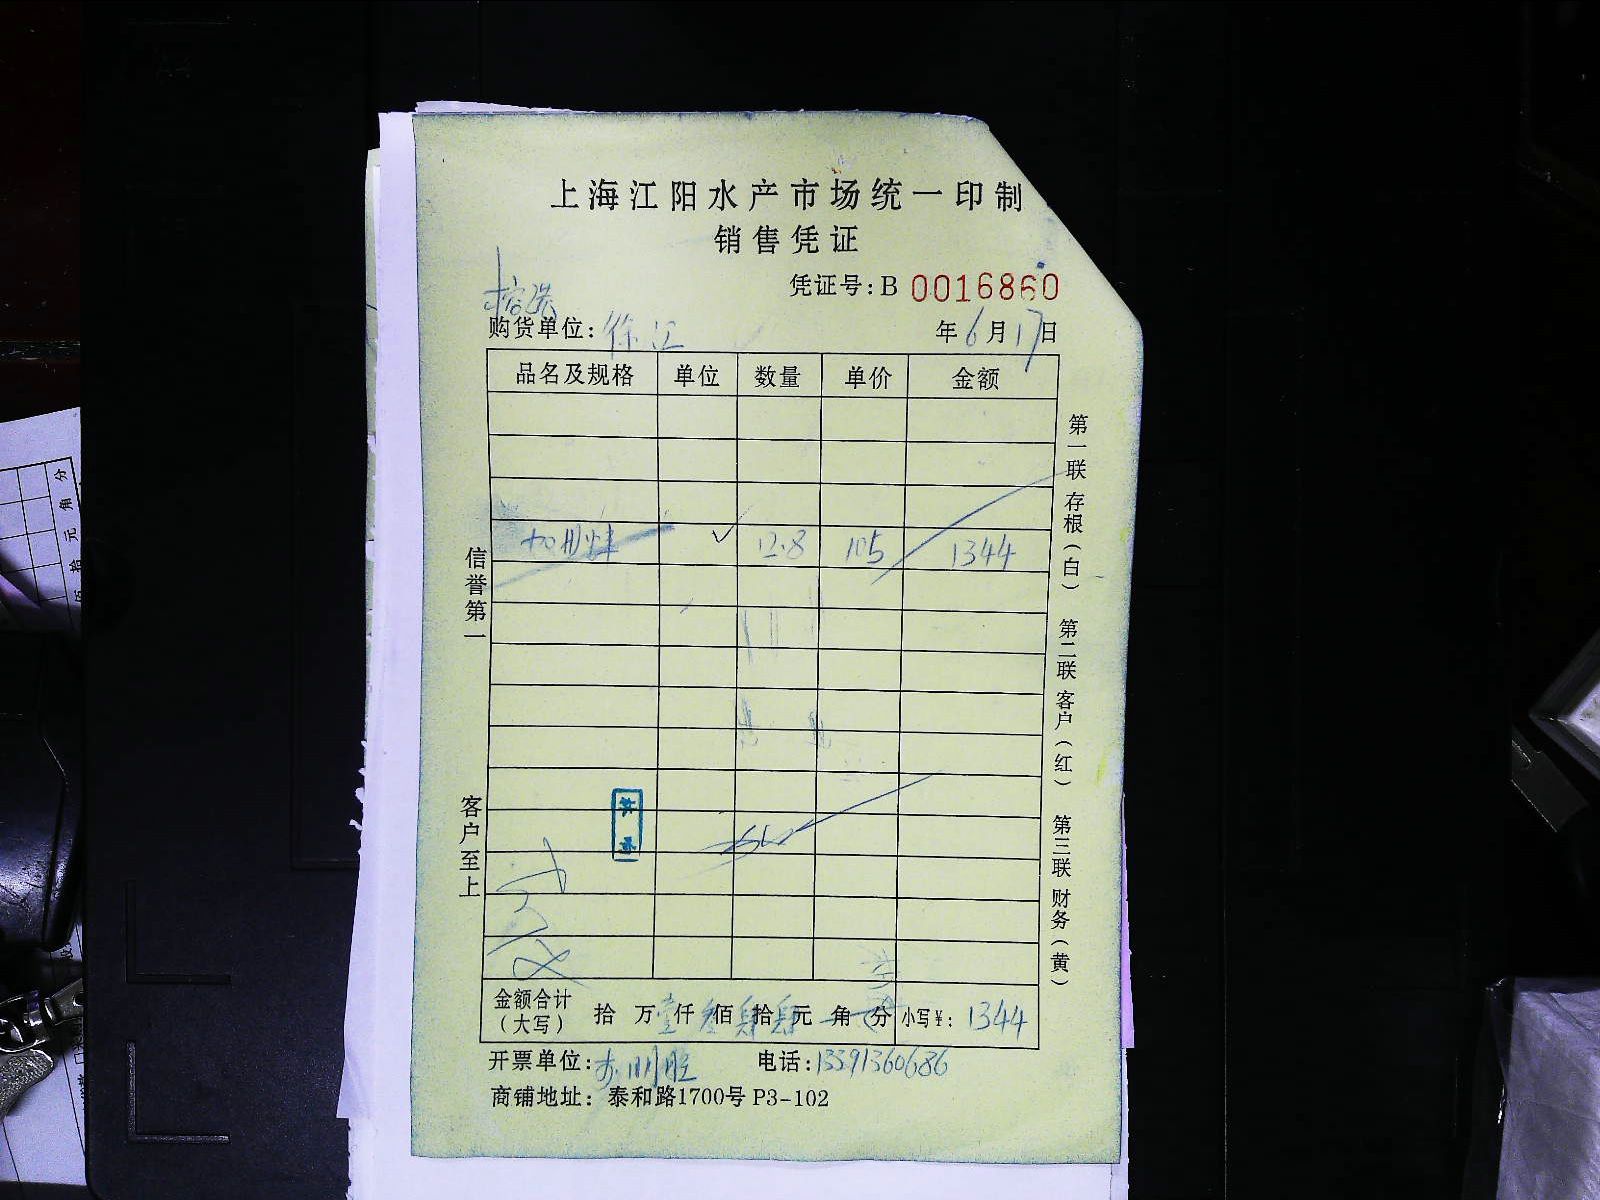 上海江阳水产市场统一印制
销售凭证
凭证号：B 0016860
购货单位：徐江
年6月17日
品名及规格 单位 数量 单价 金额
✓ 12.8 105 1344
信誉第一
客户至上
第一联 存根（白） 第二联 客户（红） 第三联 财务（黄）
金额合计（大写） 拾 万壹仟叁佰肆拾肆元 角 分 小写¥：1344
开票单位：
电话：13391360686
商铺地址：泰和路1700号 P3-102
分
角
元
拾